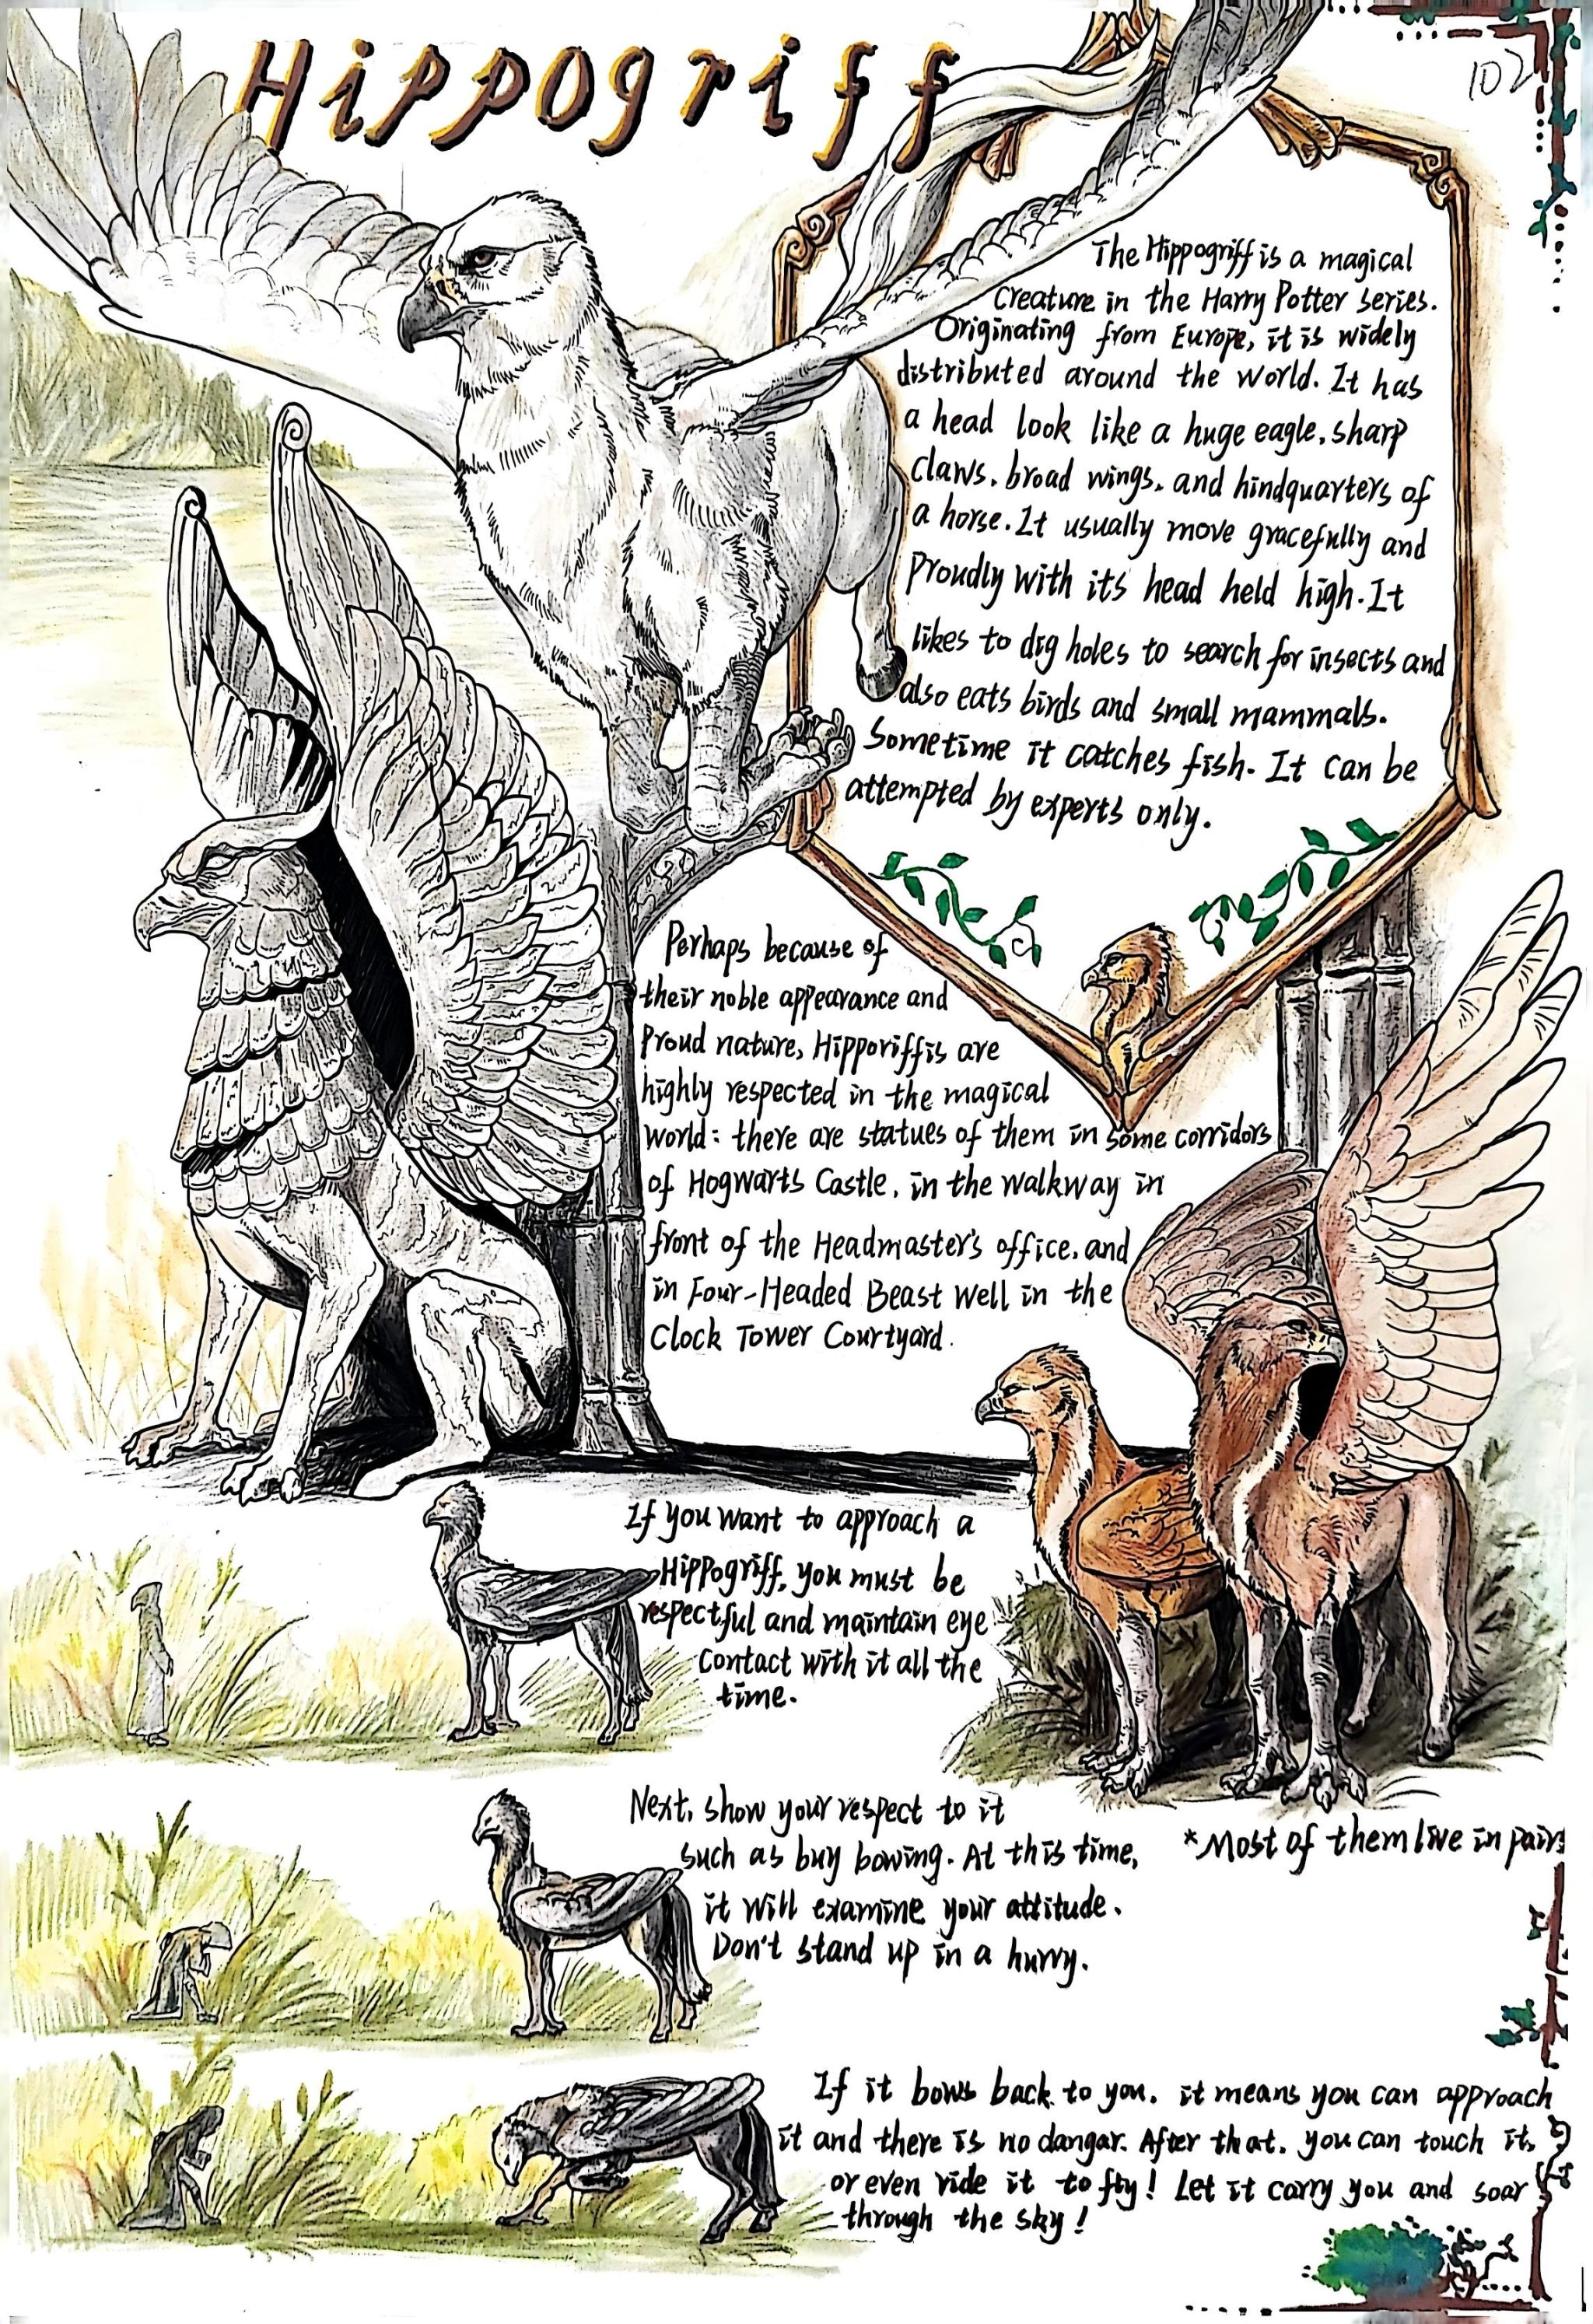 Hippogriff
102
The Hippogriff is a magical
Creature in the Harry Potter series.
Originating from Europe, it is widely
distributed around the world. It has
a head look like a huge eagle, sharp
claws, broad wings, and hindquarters of
a horse. It usually move gracefully and
Proudly with its head held high. It
likes to dig holes to search for insects and
also eats birds and small mammals.
Sometime it catches fish. It can be
attempted by experts only.
Perhaps because of
their noble appearance and
Proud nature, Hipporiffis are
highly respected in the magical
world: there are statues of them in some corridors
of Hogwarts Castle, in the walkway in
front of the Headmaster's office, and
in Four-Headed Beast Well in the
Clock Tower Courtyard.
If you want to approach a
Hippogriff, you must be
respectful and maintain eye
contact with it all the
time.
Next, show your respect to it
such as buy bowing. At this time,
it will examine your attitude.
Don't stand up in a hurry.
*Most of them live in pairs
If it bows back to you, it means you can approach
it and there is no dangar. After that, you can touch it,
or even ride it to fly! Let it carry you and soar
through the sky!